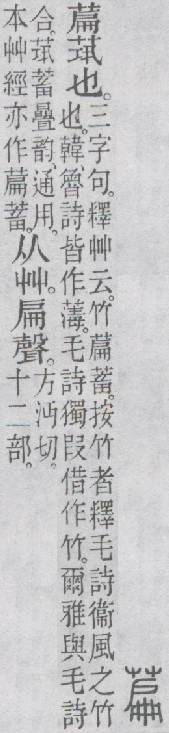 萹
萹茿也。
三字句。釋艸云。竹萹蓄。按竹者釋毛詩衞風之竹
也。韓、魯詩皆作薄。毛詩獨叚借作竹。爾雅與毛詩
合。茿蓄疊韵、通用。
本艸經亦作萹蓄。
从艸。扁聲。
方沔切。
十二部。